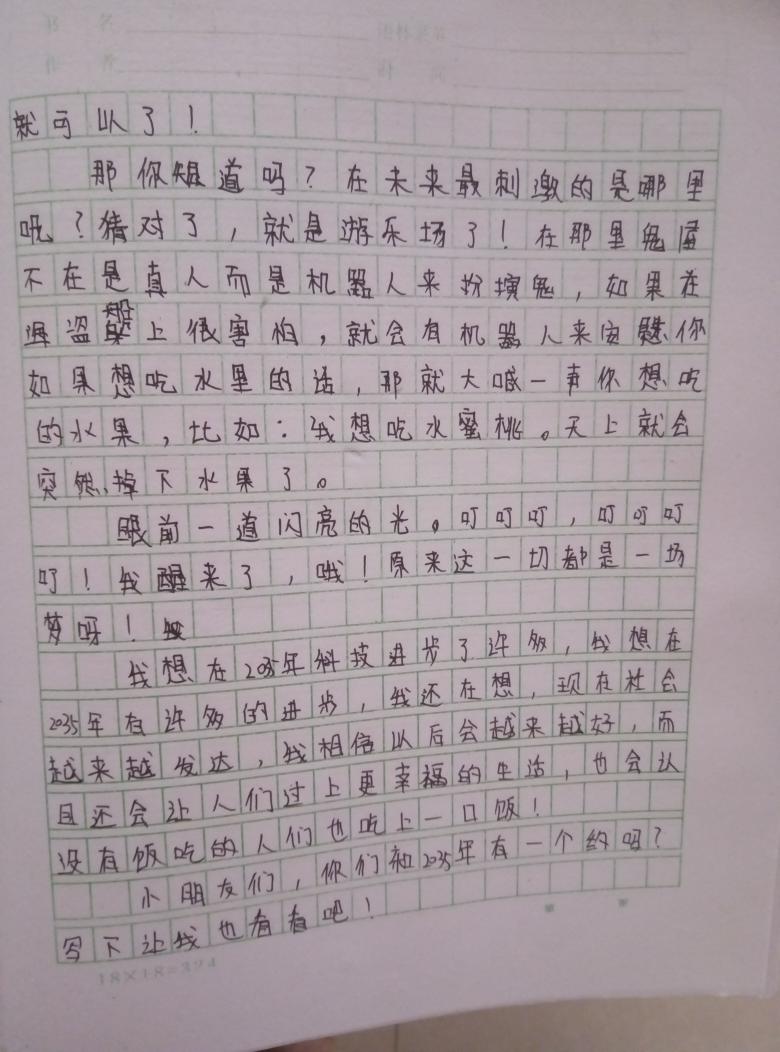 就可以了！
那你知道吗？在未来最刺激的是哪里
呢？猜对了，就是游乐场了！在那里鬼屋
不在是真人而是机器人来扮演鬼，如果在
海盗船上很害怕，就会有机器人来安慰你
如果想吃水里的话，那就大喊一声你想吃
的水果，比如：我想吃水蜜桃。天上就会
突然掉下水果了。
眼前一道闪亮的光。叮叮叮，叮叮叮
叮！我醒来了，哦！原来这一切都是一场
梦呀！
我想在2035年科技进步了许多，我想在
2035年有许多的进步，我还在想，现在社会
越来越发达，我相信以后会越来越好，而
且还会让人们过上更幸福的生活，也会认
没有饭吃的人们也吃上一口饭！
小朋友们，你们和2035年有一个约吗？
写下让我也看看吧！
18×18=324